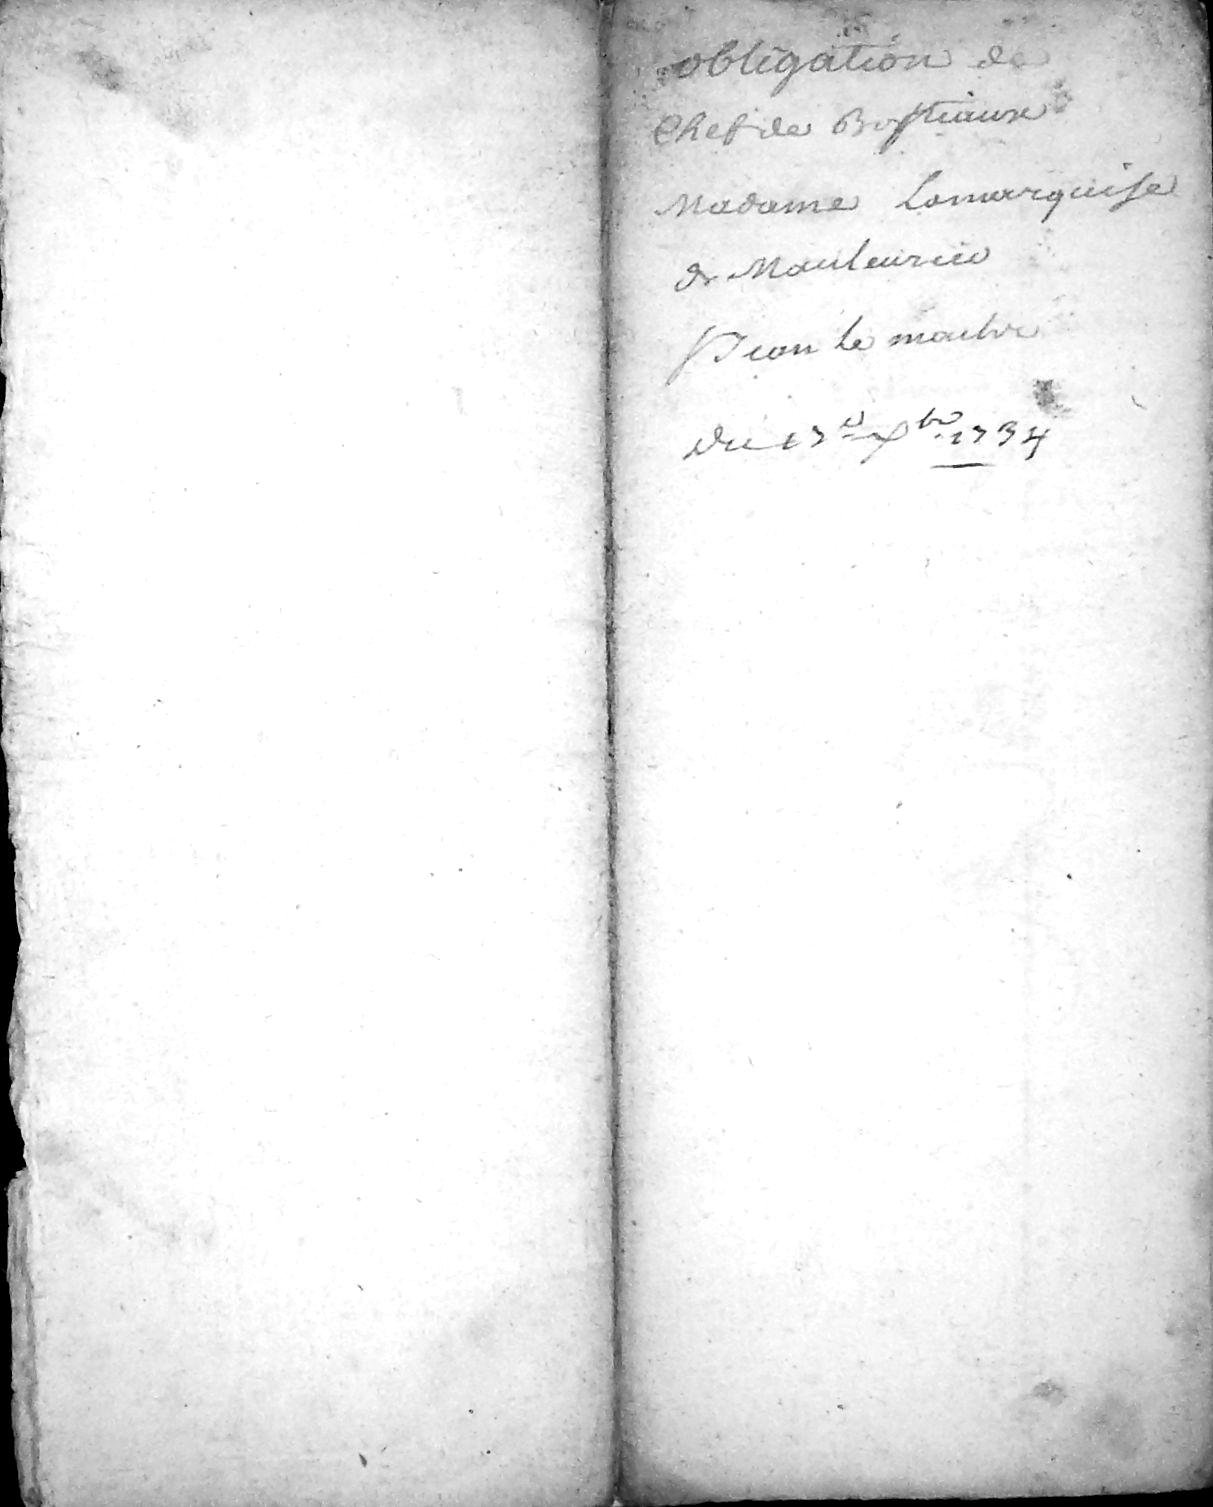 obligation de
Chef de Bestiaux
Madame Lamarquise
de Maulevrier
Jean le maitre
Du 17e Xbre 1734